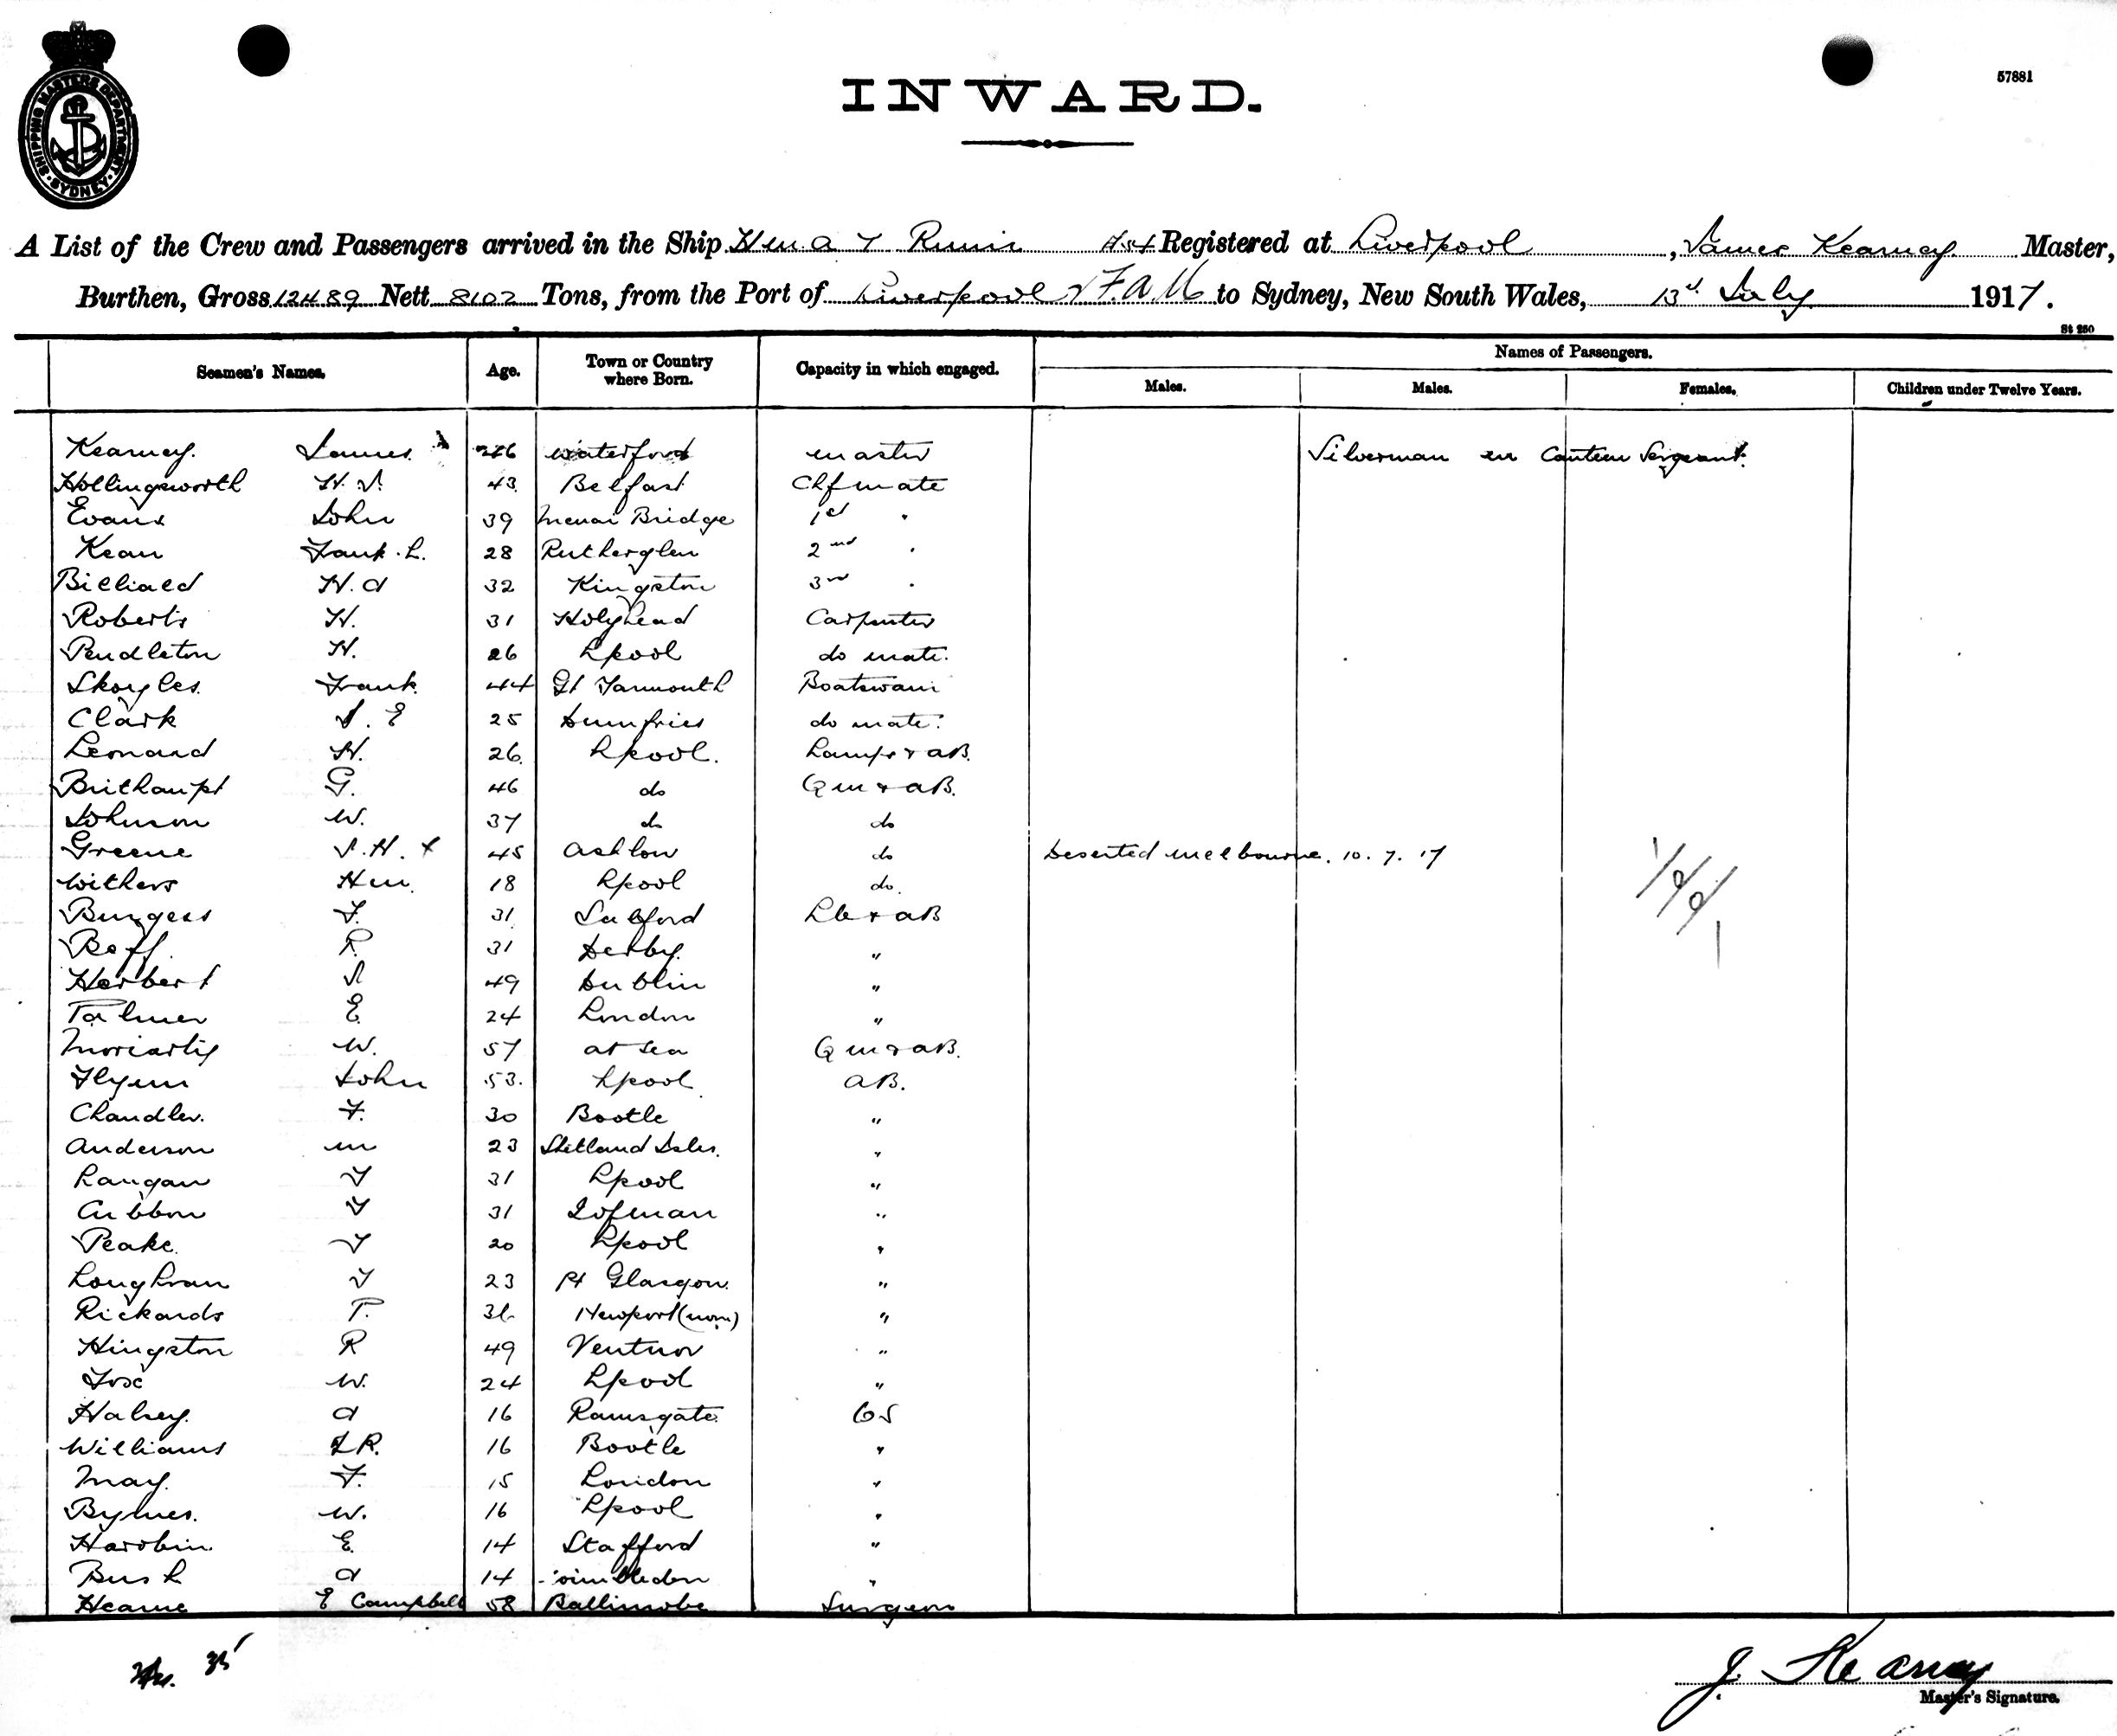 SHIPPING MASTERS DEPARTMENT · SYDNEY ·
57881
INWARD.
A List of the Crew and Passengers arrived in the Ship Registered at Liverpool, James Kearney Master,
Burthen, Gross 12489 Nett 8102 Tons, from the Port of Liverpool & to Sydney, New South Wales, 13th July 1917.
St 250
Seamen's Names. Age. Town or Country where Born. Capacity in which engaged. Names of Passengers.
Males. Males. Females. Children under Twelve Years.
Kearney. James 46 Waterford master Silverman Canteen Sergeant.
Hollingsworth H. J. 43 Belfast Chf mate
Evans John 39 Menai Bridge 1st "
Kean Frank. L. 28 Rutherglen 2nd "
Billiald H. A 32 Kingston 3rd "
Roberts H. 31 Holyhead Carpenter
Pendleton H. 26 Lpool do mate.
Skoyles Frank 44 Gt Yarmouth Boatswain
Clark J. E 25 Dumfries do mate.
Leonard H. 26 Lpool. Lamps & AB.
Brithaupt G. 46 do Qm & AB.
Johnson W. 37 do do
Greene J. H. x 45 Ashton do Deserted Melbourne. 10. 7. 17
Withers Hm 18 Lpool do.
Burgess F. 31 Salford & AB
Roff R. 31 Derby. "
Herbert J 49 Dublin "
Palmer E. 24 London "
Moriarty W. 57 at sea Qm & AB.
Flynn John 53. Lpool AB.
Chandler. F. 30 Bootle "
Anderson M 23 Shetland Isles. "
Langan J 31 Lpool "
Cubbon J 31 I of man "
Peake J 20 Lpool "
Loughran J 23 Pt Glasgow. "
Rickards P. 36 Newport (mon) "
Hingston R 49 Ventnor "
Fox W. 24 Lpool "
Halsey. A 16 Ramsgate OS
Williams R. 16 Bootle "
May. F. 15 London "
Byrnes. W. 16 Lpool "
Harbin E. 14 Stafford "
Bush A 14 Wimbledon "
Hearne E Campbell 58 Ballinrobe Surgeon
35
J. Kearney
Master's Signature.